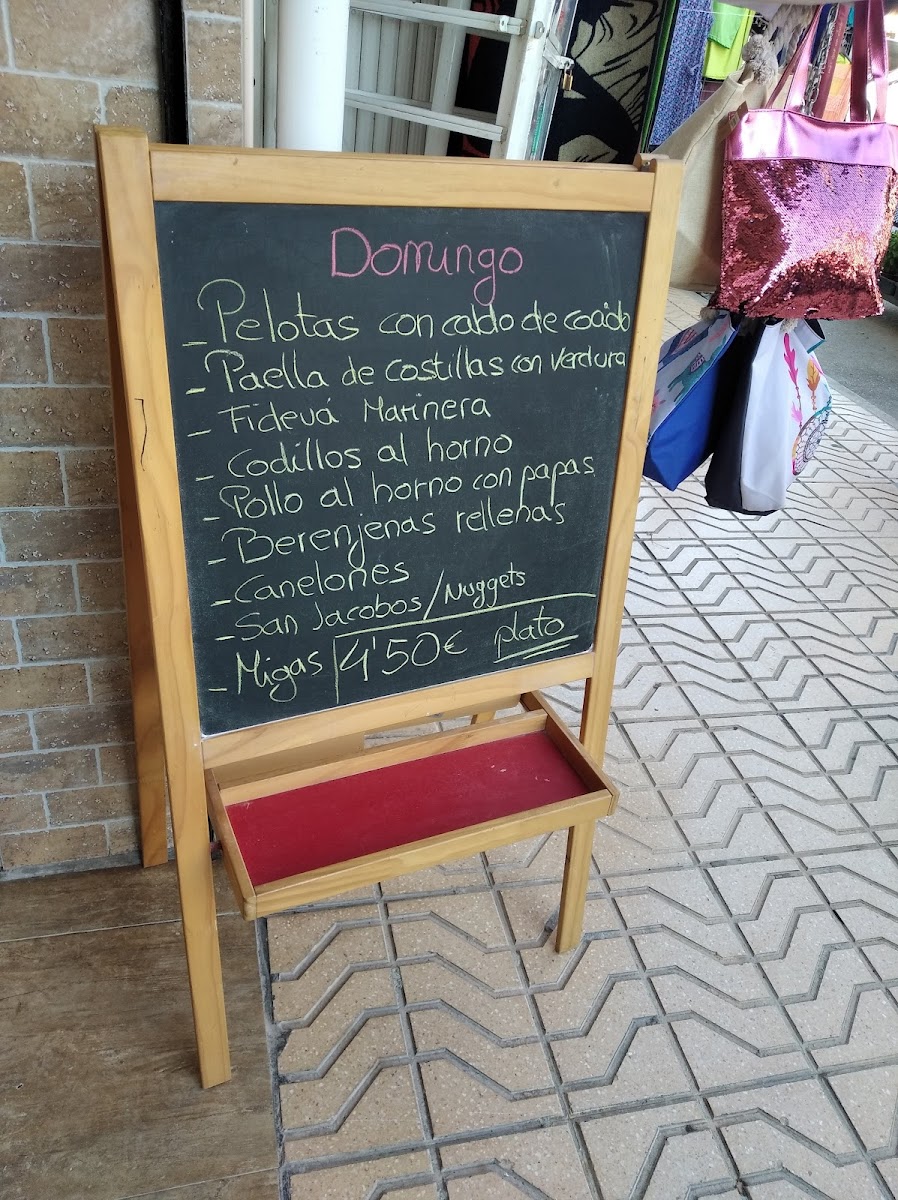 Domingo
- Pelotas con caldo de cocido
- Paella de costillas con verdura
- Fidevá Marinera
- Codillos al horno
- Pollo al horno con papas
- Berenjenas rellenas
- Canelones
- San Jacobos/Nuggets
- Migas 4'50€ plato